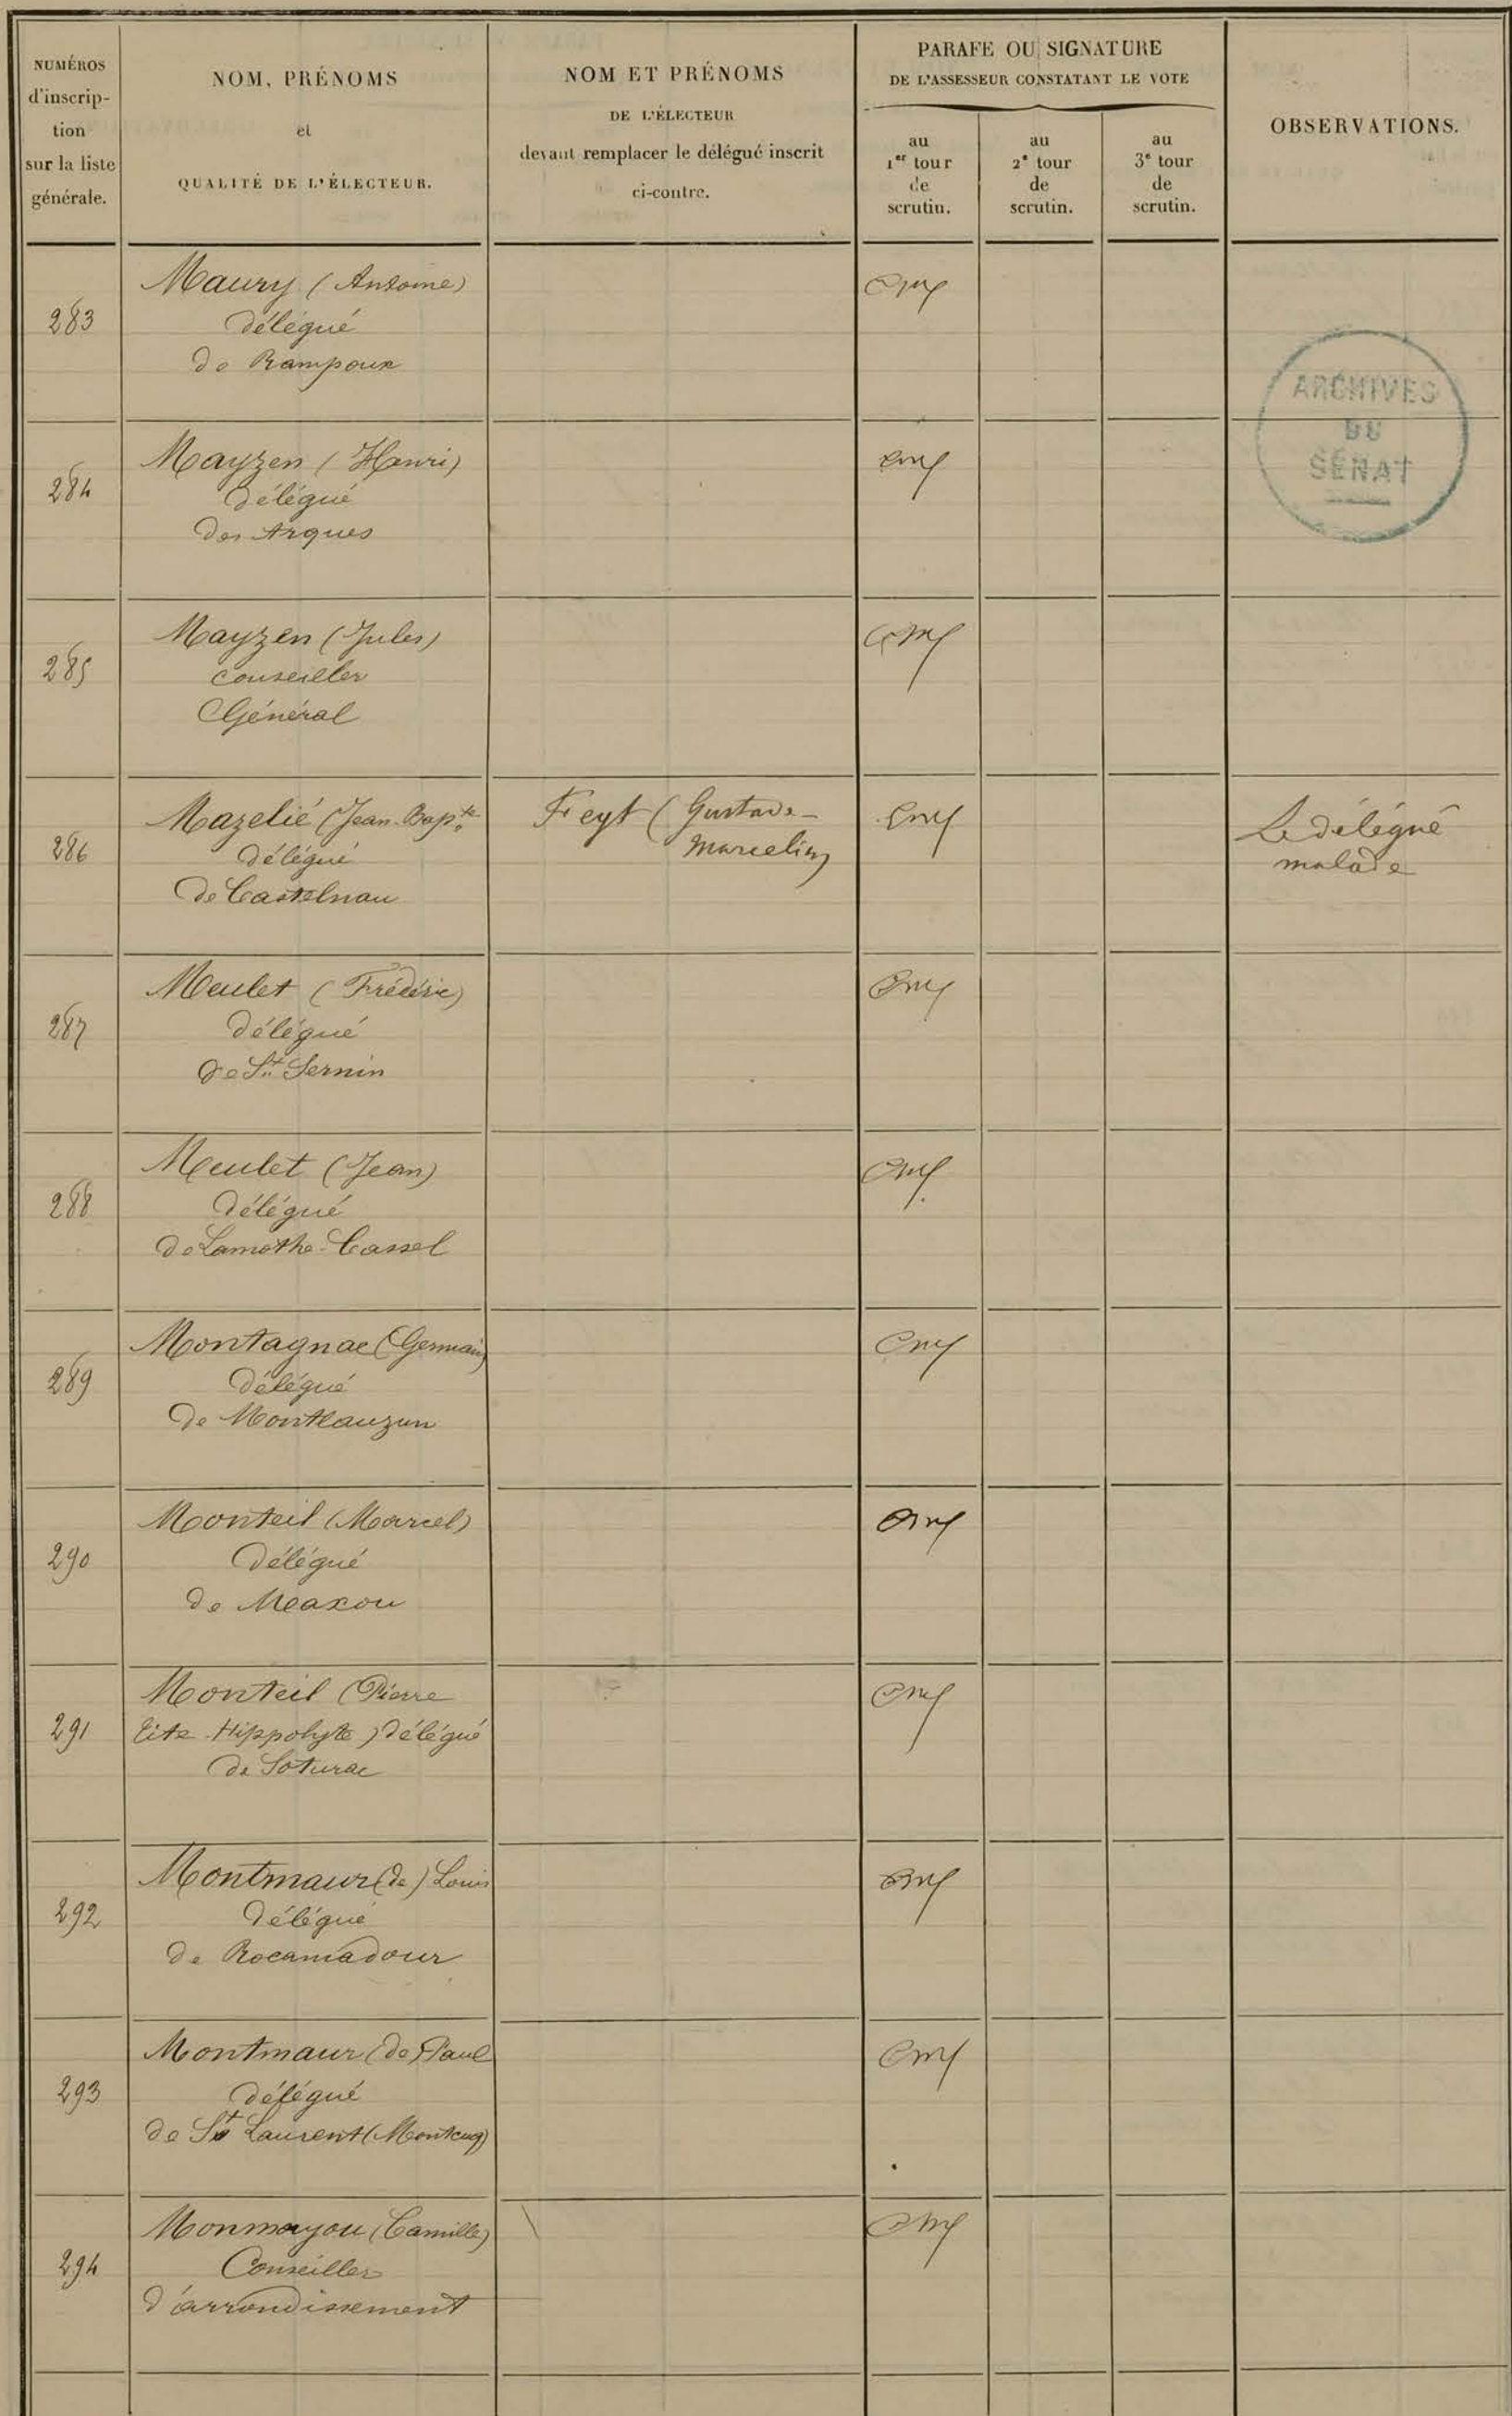 NUMÉROS
d'inscrip-
tion
sur la liste
générale.
NOM, PRÉNOMS
et
QUALITÉ DE L'ÉLECTEUR.
NOM ET PRÉNOMS
DE L'ÉLECTEUR
devant remplacer le délégué inscrit
ci-contre.
PARAFE OU SIGNATURE
DE L'ASSESSEUR CONSTATANT LE VOTE
au
1er tour
de
scrutin.
au
2e tour
de
scrutin.
au
3e tour
de
scrutin.
OBSERVATIONS.
283
Maury (Antoine)
délégué
de Rampoux
ARCHIVES
DU
SÉNAT
284
Mayzen (Henri)
délégué
des Arques
285
Mayzen (Jules)
conseiller
Général
286
Mazelié (Jean-Bapte
délégué
de Castelnau
Feyt (Gustave-
Marcelin)
Le délégué
malade
287
Meulet (Frédéric)
délégué
de St Sernin
288
Meulet (Jean)
délégué
de Lamothe-Cassel
289
Montagnac (Germain)
délégué
de Montlauzun
290
Monteil (Marcel)
délégué
de Maxou
291
Monteil (Pierre
Tite Hippolyte) délégué
de Soturac
292
Montmaur (de) Louis
délégué
de Rocamadour
293
Montmaur (de) Paul
délégué
de St Laurent (Montcuq)
294
Monmayou (Camille)
Conseiller
d'arrondissement